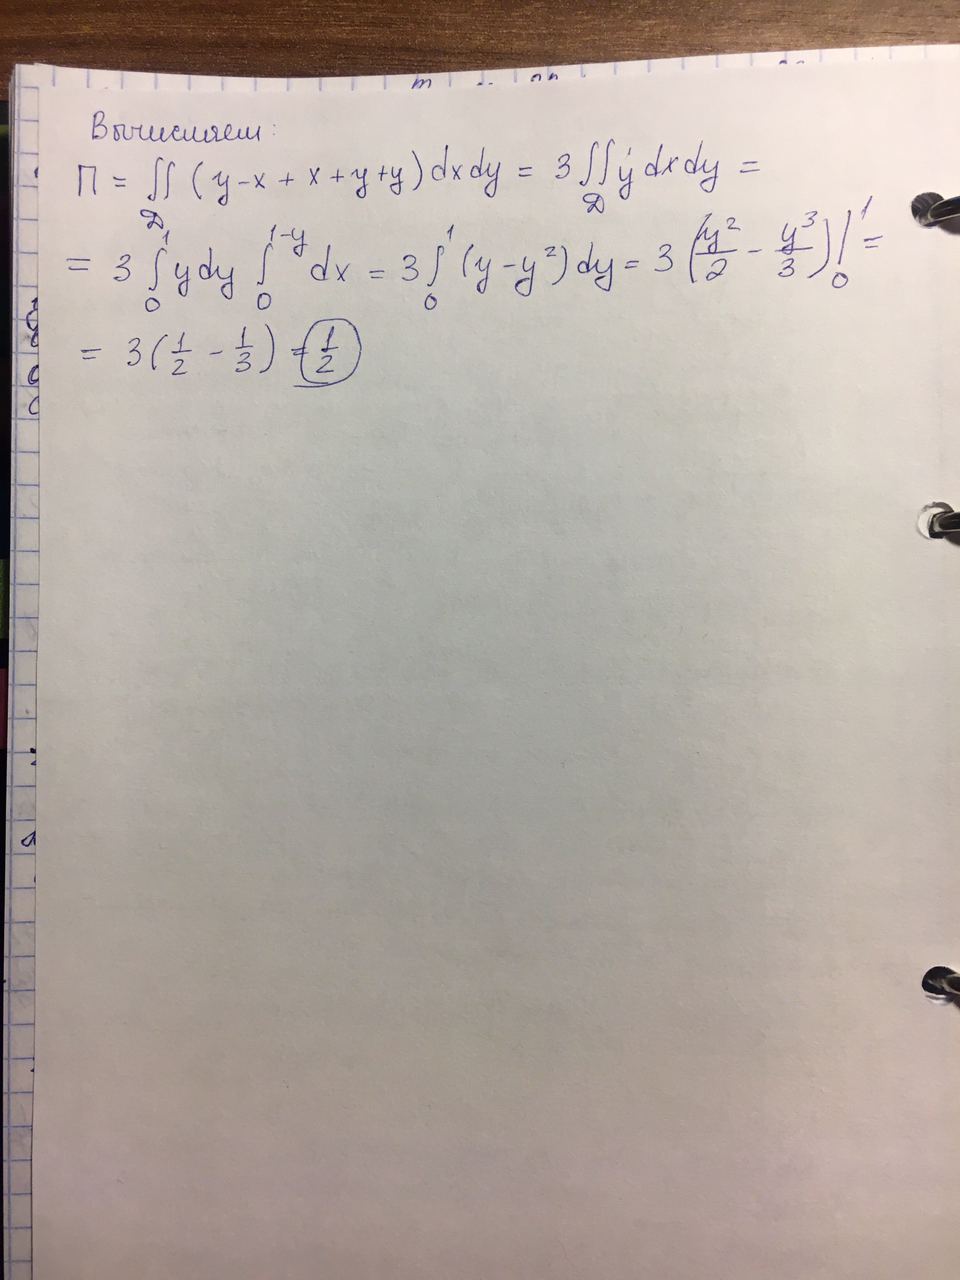 Вычисляем:
П = ∬_D (y-x+x+y+y) dxdy = 3∬_D y dxdy =
= 3 ∫_0^1 y dy ∫_0^{1-y} dx = 3 ∫_0^1 (y-y²) dy = 3 (y²/2 - y³/3)|_0^1 =
= 3(1/2 - 1/3) = 1/2